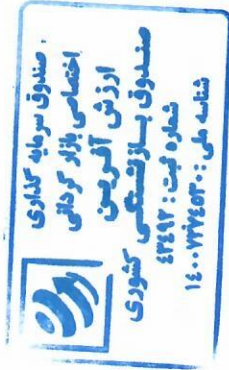 صندوق سرمایه گذاری
اختصاصی بازار گردانی
ارزش آفرین
صندوق بازنشستگی کشوری
شماره ثبت: ۴۳۴۹۳
شناسه ملی: ۱۴۰۰۷۲۷۴۵۳۰